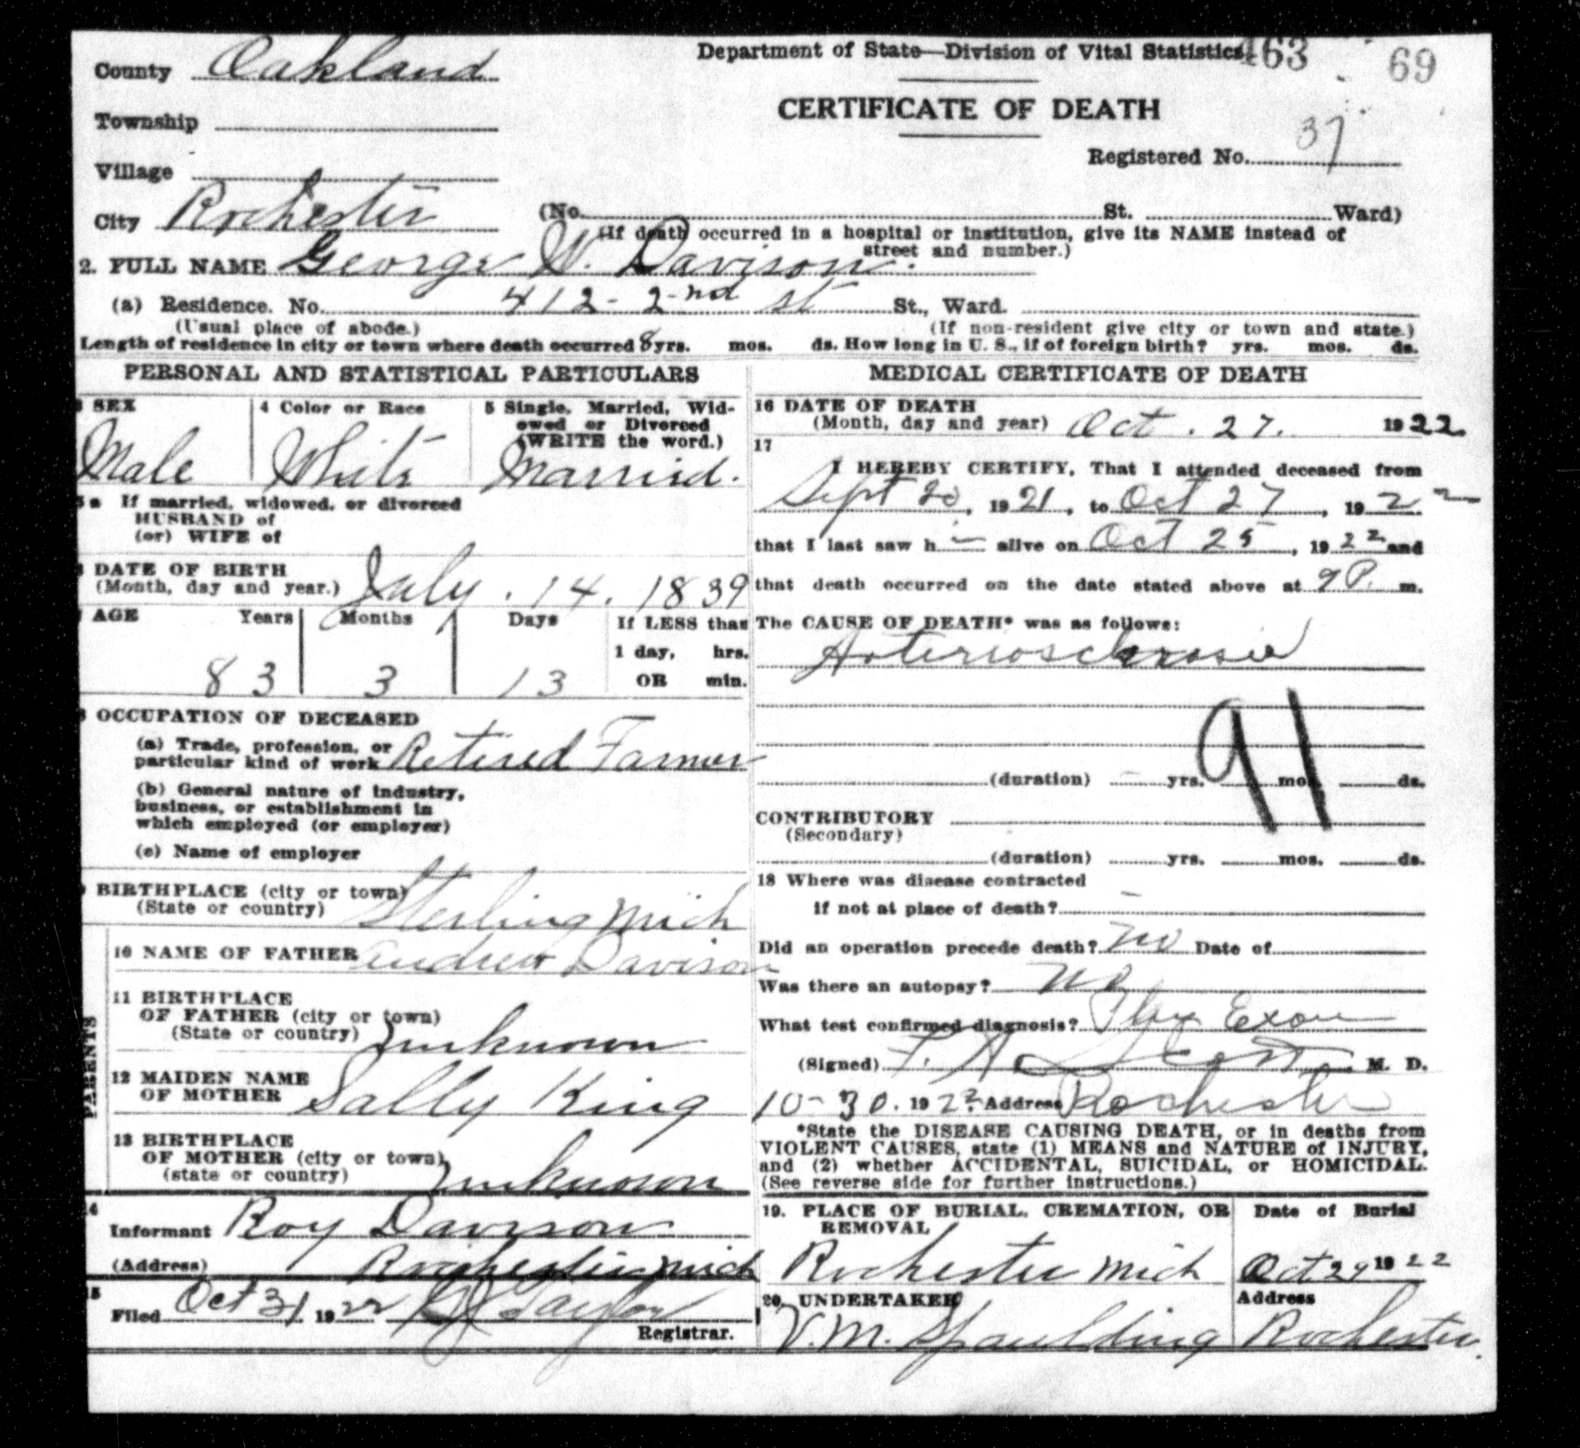 Department of State—Division of Vital Statistics
463 69
County Oakland
CERTIFICATE OF DEATH
Township
Registered No. 37
Village
City Rochester
(No. St. Ward)
(If death occurred in a hospital or institution, give its NAME instead of
street and number.)
2. FULL NAME George W. Davison.
(a) Residence. No. 412 - 2nd st St., Ward.
(Usual place of abode.) (If non-resident give city or town and state.)
Length of residence in city or town where death occurred 8 yrs. mos. ds. How long in U. S., if of foreign birth? yrs. mos. ds.
PERSONAL AND STATISTICAL PARTICULARS
3 SEX
Male
4 Color or Race
White
5 Single, Married, Wid-
owed or Divorced
(WRITE the word.)
Married.
5a If married, widowed, or divorced
HUSBAND of
(or) WIFE of
DATE OF BIRTH
(Month, day and year.) July . 14 . 1839
AGE Years Months Days If LESS than
1 day, hrs.
83 3 13 OR min.
OCCUPATION OF DECEASED
(a) Trade, profession, or
particular kind of work Retired Farmer
(b) General nature of industry,
business, or establishment in
which employed (or employer)
(c) Name of employer
BIRTHPLACE (city or town)
(State or country) Sterling Mich
PARENTS
10 NAME OF FATHER Andrew Davison
11 BIRTHPLACE
OF FATHER (city or town)
(State or country) unknown
12 MAIDEN NAME
OF MOTHER Sally King
13 BIRTHPLACE
OF MOTHER (city or town)
(state or country) unknown
14
Informant Roy Davison
(Address) Rochester Mich
15
Filed Oct 31 1922 Taylor
Registrar.
MEDICAL CERTIFICATE OF DEATH
16 DATE OF DEATH
(Month, day and year) Oct . 27. 1922.
17
I HEREBY CERTIFY, That I attended deceased from
Sept 20, 1921, to Oct 27, 1922
that I last saw h alive on Oct 25, 1922 and
that death occurred on the date stated above at 9 P. m.
The CAUSE OF DEATH* was as follows:
Arteriosclerosis
91
(duration) yrs. mos. ds.
CONTRIBUTORY
(Secondary)
(duration) yrs. mos. ds.
18 Where was disease contracted
if not at place of death?
Did an operation precede death? No Date of
Was there an autopsy? No
What test confirmed diagnosis? Phy Exam
(Signed) M. D.
10-30. 1922. Address Rochester
*State the DISEASE CAUSING DEATH, or in deaths from
VIOLENT CAUSES, state (1) MEANS and NATURE of INJURY,
and (2) whether ACCIDENTAL, SUICIDAL, or HOMICIDAL.
(See reverse side for further instructions.)
19. PLACE OF BURIAL, CREMATION, OR
REMOVAL
Rochester Mich
Date of Burial
Oct 29 1922
20. UNDERTAKER
V.M. Spaulding
Address
Rochester.